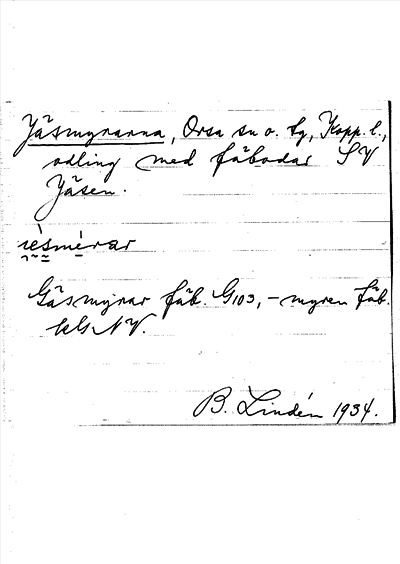 Jäsmyrarna, Orsa sn o. tg, Kopp. l.,
odling med fäbodar SV
Jäsen.
Gäsmyrar fäb. G103, - myren fäb.
kG NV.
B. Lindén 1934.